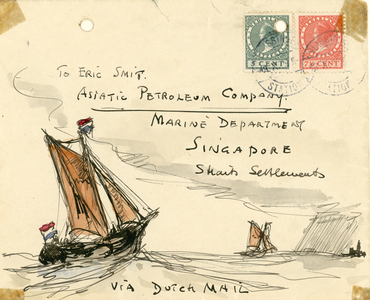 5 CENT
7½ CENT
To Eric Smit.
Asiatic Petroleum Company.
Marine Department
Singapore
Straits Settlements
Via Dutch Mail